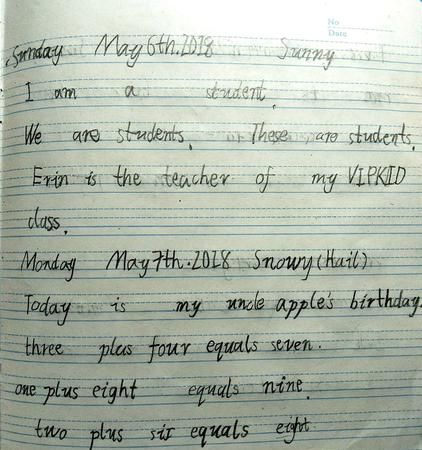 No
Date
Sunday May 6th.2018 Sunny
I am a student.
We are students. These are students.
Erin is the teacher of my VIPKID
class.
Monday May 7th.2018 Snowy(Hail)
Today is my uncle apple's birthday.
three plus four equals seven.
one plus eight equals nine.
two plus six equals eight